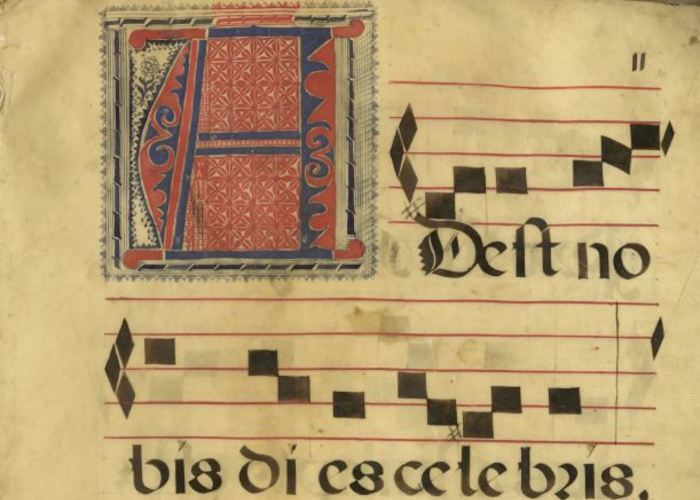 ADeſt no
bis di es ce le bꝛis.